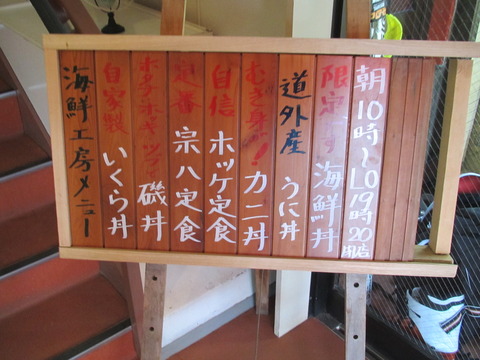 朝10時～LO19時20閉店
限定です 海鮮丼
道外産 うに丼
むき身! カニ丼
自信 ホッケ定食
定番 宗八定食
ホタテホッキツブ 磯丼
自家製 いくら丼
海鮮工房メニュー